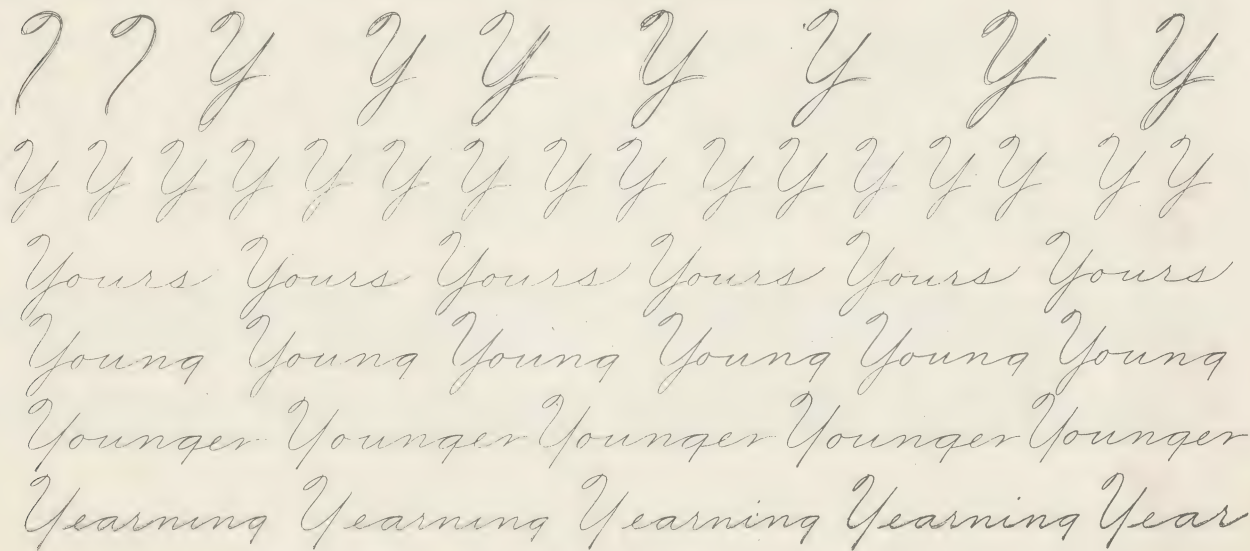 Y Y Y Y Y Y Y
Y Y Y Y Y Y Y Y Y Y Y Y Y Y Y Y
Yours Yours Yours Yours Yours Yours
Young Young Young Young Young Young
Younger Younger Younger Younger Younger
Yearning Yearning Yearning Yearning Year